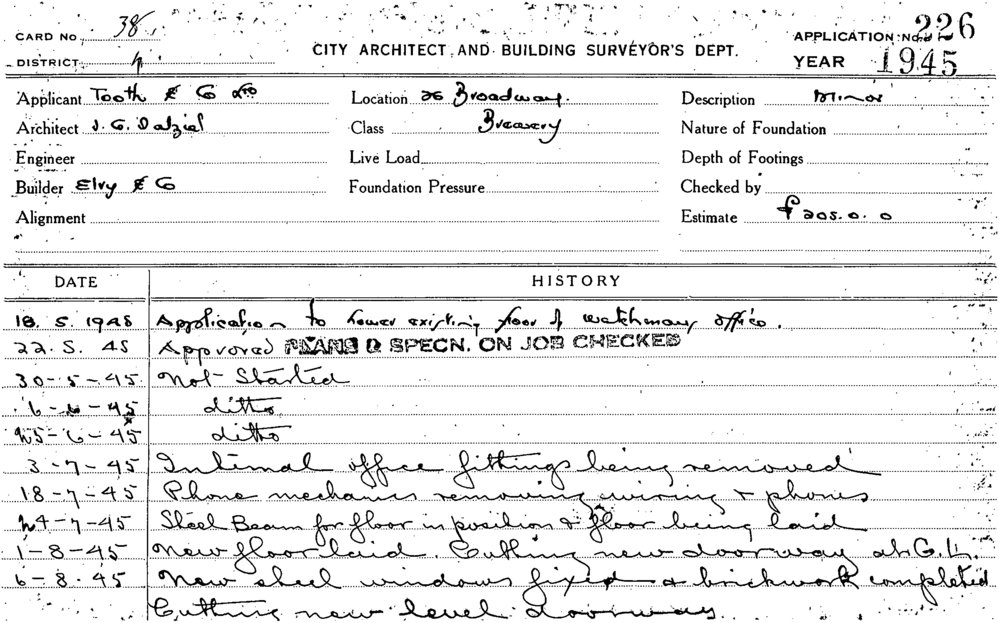 CARD No. 38
APPLICATION No. 226
CITY ARCHITECT AND BUILDING SURVEYOR'S DEPT.
DISTRICT 4
YEAR 1945
Applicant Tooth & Co Ltd Location 26 Broadway. Description Minor
Architect J. G. Dalziel Class Brewery Nature of Foundation
Engineer Live Load Depth of Footings
Builder Elvy & Co Foundation Pressure Checked by
Alignment Estimate £ 205. 0. 0
DATE HISTORY
18. 5. 1945 Application to lower existing floor of watchmans office.
22. 5. 45 Approved PLANS & SPECN. ON JOB CHECKED
30-5-45 Not Started
6-6-45 ditto
25-6-45 ditto
3-7-45 Internal office fittings being removed
18-7-45 Phone mechanics removing wiring & phones
24-7-45 Steel Beam for floor in position & floor being laid
1-8-45 New floor laid. Cutting new doorway at G.L.
6-8-45 New steel windows fixed & brickwork completed
Cutting new level doorway